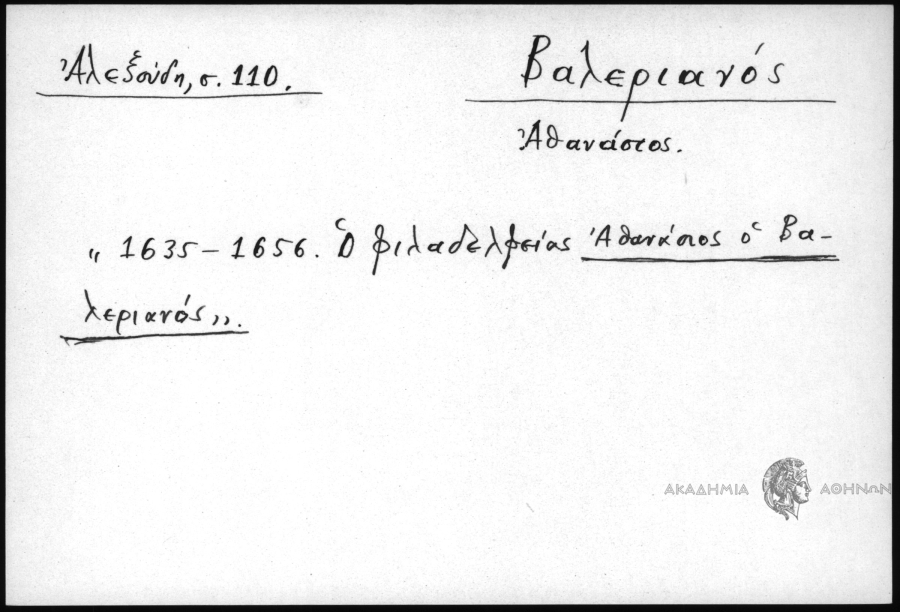 Ἀλεξούδη, σ. 110.
Βαλεριανός
Ἀθανάσιος.
„ 1635 – 1656. Ὁ Φιλαδελφείας Ἀθανάσιος ὁ Βα-
λεριανός„.
ΑΚΑΔΗΜΙΑ ΑΘΗΝΩΝ